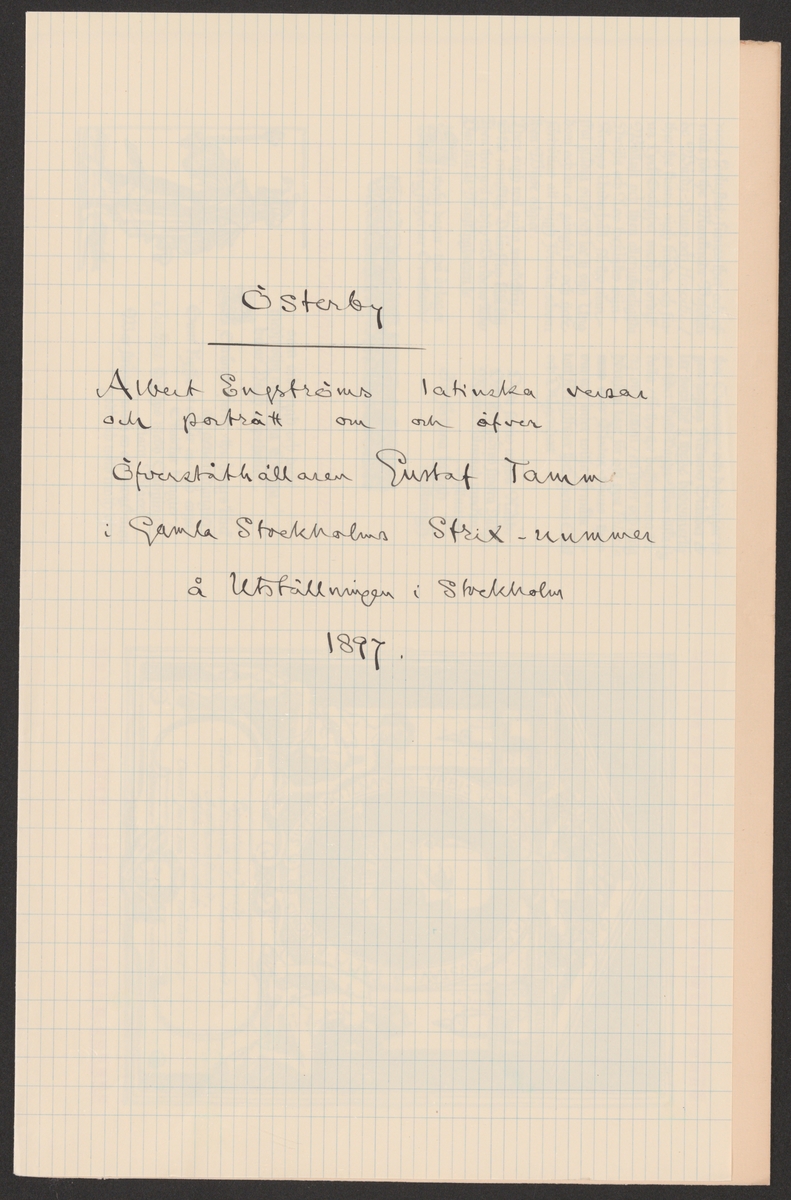 Österby
Albert Engströms latinska versar
och porträtt om och öfver
Öfverståthållaren Gustaf Tamm
i Gamla Stockholms Strix-nummer
å Utställningen i Stockholm
1897.